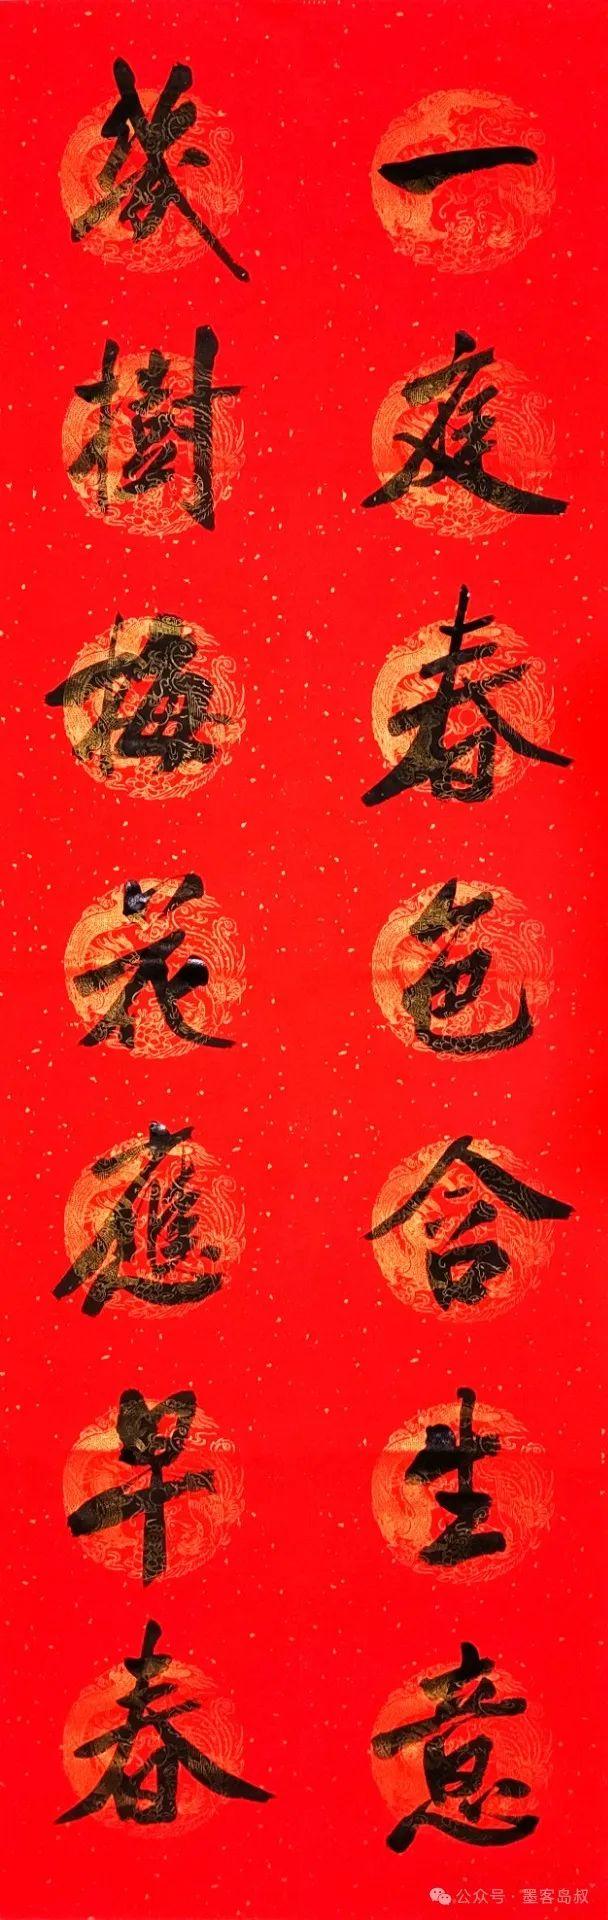 一庭春色含生意
幾樹梅花應早春
公众号·墨客岛叔